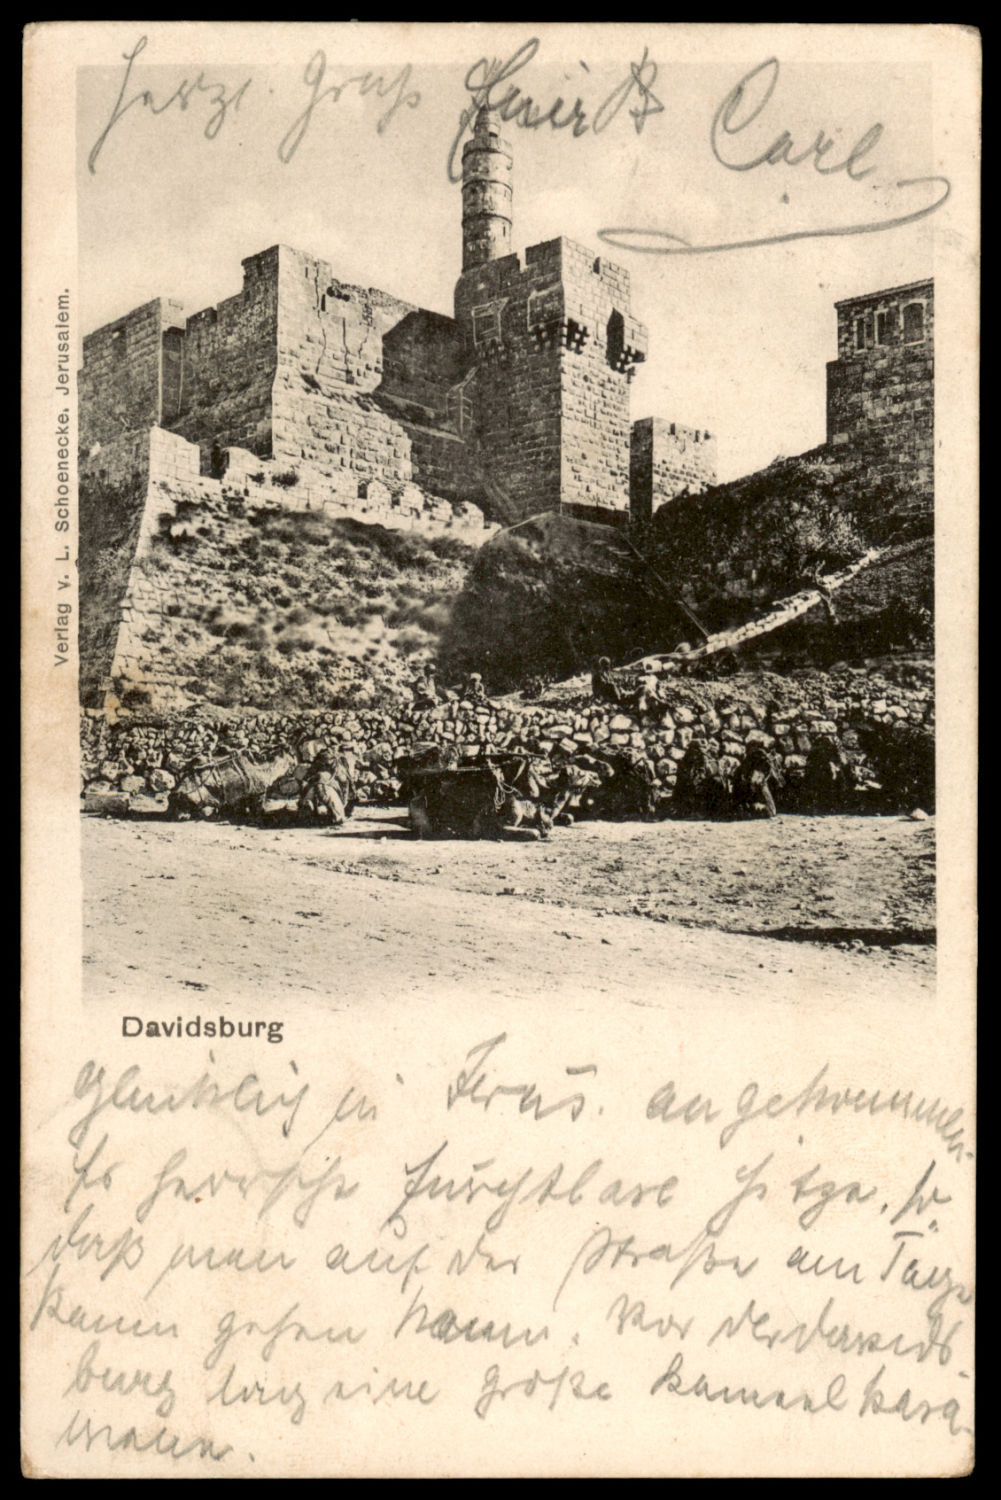 Herzl. Gruß Carl
Verlag v. L. Schoenecke, Jerusalem.
Davidsburg
Glücklich in Jerus. angekommen.
Es herrscht furchtbare Hitze, so
daß man auf der Straße am Tage
kaum gehen kann. Vor der Davids-
burg lag eine große Kameelkara-
wane.